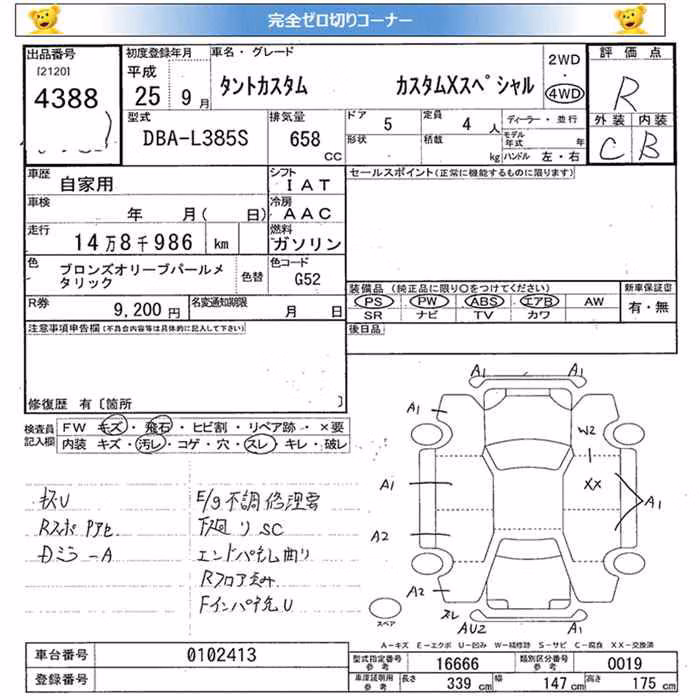 完全ゼロ切りコーナー
出品番号
[2120]
4388
初度登録年月
平成
25 9月
車名・グレード
タントカスタム カスタムXスペシャル
2WD
・
4WD
評価点
R
外装 内装
C B
型式
DBA-L385S
排気量
658
CC
ドア
5
定員
4 人
形状
積載
kg
ディーラー・並行
モデル年式 年
ハンドル 左・右
車歴
自家用
シフト
IAT
車検
年 月( 日)
冷房
AAC
走行
14万8千986 km
燃料
ガソリン
色
ブロンズオリーブパールメタリック
色替
色コード
G52
R券
9,200円
名変通知期限
月 日
セールスポイント(正常に機能するものに限ります)
装備品 (純正品に限り○をつけてください)
PS PW ABS エアB AW
SR ナビ TV カワ
新車保証書
有・無
後日品
注意事項申告欄(不具合内容等は具体的に記入して下さい)
修復歴 有〔箇所 〕
検査員記入欄
FW キズ・飛石・ヒビ割・リペア跡・×要
内装 キズ・汚レ・コゲ・穴・スレ・キレ・破レ
E/g不調修理要
下廻りSC
エンドパネル曲り
Dミラ-A
A1 A1
A1
W2
XX
A1
A1
A2
A2
スレ
AU2
A1
スペア
A=キズ E=エクボ U=凹み W=補修跡 S=サビ C=腐食 XX=交換済
車台番号
0102413
登録番号
型式指定番号
参考
16666
類別区分番号
参考
0019
車庫証明用
参考
長さ
339 cm
幅
147 cm
高さ
175 cm